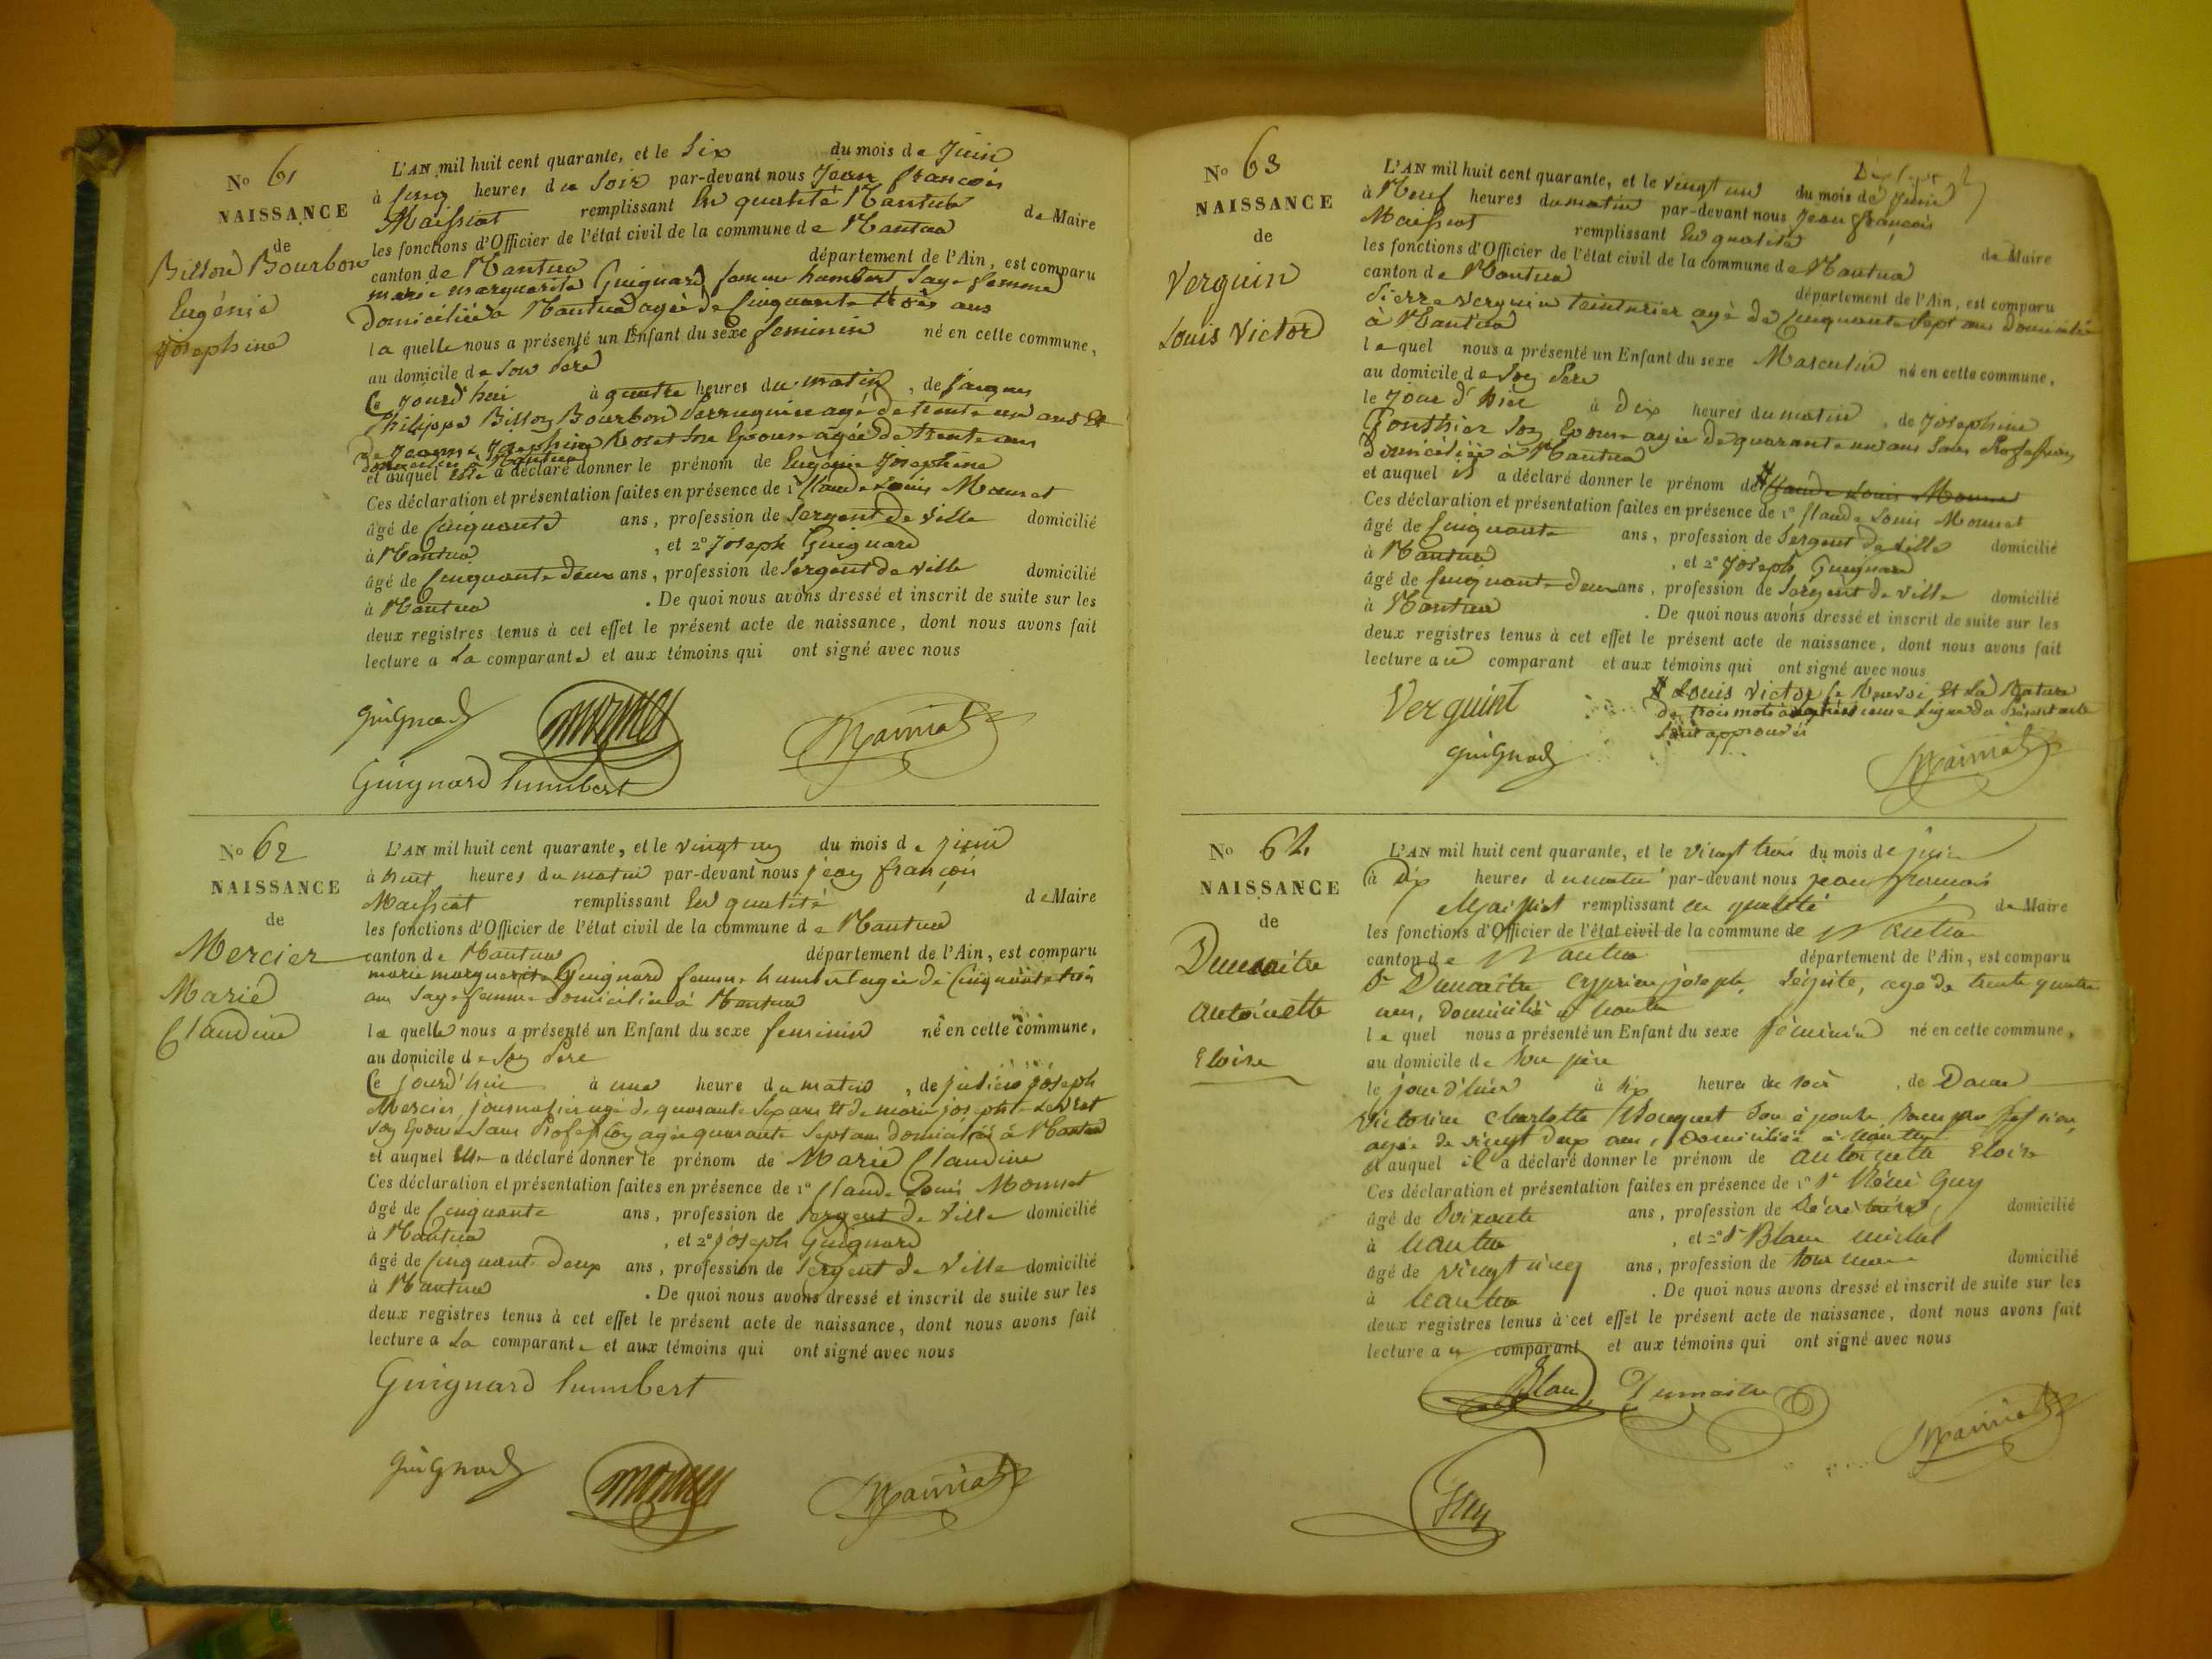 No 61
NAISSANCE
de
Billon Bourbon
Eugénie
Josephine
L'AN mil huit cent quarante, et le Six du mois de Juin
à Cinq heures du Soir par-devant nous Jean françois
Maissiat remplissant En qualité de Maire
les fonctions d'Officier de l'état civil de la commune de Nantua
canton de Nantua département de l'Ain, est comparu
marie marguerite Guignard femme humbert Sage femme
domiciliée à Nantua agée de Cinquante trois ans
la quelle nous a présenté un Enfant du sexe feminin né en cette commune,
au domicile de Son Père
Ce jourd'hui à quatre heures du matin, de Jacques
Philippe Billon Bourbon Perruquier agé de trente un ans Et
de Jeanne Josephine Son Epouse agée de trente ans
domiciliés à Nantua
et auquel Elle a déclaré donner le prénom de Eugénie Josephine
Ces déclaration et présentation faites en présence de 1° Claude Louis Mounet
âgé de Cinquante ans, profession de Sergent de Ville domicilié
à Nantua, et 2° Joseph Guignard
âgé de Cinquante deux ans, profession de Sergent de ville domicilié
à Nantua. De quoi nous avons dressé et inscrit de suite sur les
deux registres tenus à cet effet le présent acte de naissance, dont nous avons fait
lecture a La comparante et aux témoins qui ont signé avec nous
guignard
Maissiat
Guignard humbert
No 62
NAISSANCE
de
Mercier
Marie
Claudine
L'AN mil huit cent quarante, et le vingt un du mois de juin
à huit heures du matin par-devant nous jean françois
Maissiat remplissant En qualité de Maire
les fonctions d'Officier de l'état civil de la commune de Nantua
canton de Nantua département de l'Ain, est comparu
marie marguerite Guignard femme humbert agée de Cinquante trois
ans Sage femme domiciliée à Nantua
la quelle nous a présenté un Enfant du sexe feminin né en cette commune,
au domicile de Son Père
Ce jourd'hui à une heure du matin, de joseph
Mercier, journalier agé de quarante Six ans Et de marie josephte
Son Epouse Sans Profession agée quarante Sept ans domiciliés à Nantua
et auquel Elle a déclaré donner le prénom de Marie Claudine
Ces déclaration et présentation faites en présence de 1° Claude Louis Mounet
âgé de Cinquante ans, profession de Sergent de Ville domicilié
à Nantua, et 2° joseph Guignard
âgé de Cinquante deux ans, profession de Sergent de Ville domicilié
à Nantua. De quoi nous avons dressé et inscrit de suite sur les
deux registres tenus à cet effet le présent acte de naissance, dont nous avons fait
lecture a La comparante et aux témoins qui ont signé avec nous
Guignard humbert
guignard
Maissiat
No 63
NAISSANCE
de
Verguin
Louis Victor
L'AN mil huit cent quarante, et le vingt un du mois de Juin
à Neuf heures du matin par-devant nous Jean françois
Maissiat remplissant En qualité de Maire
les fonctions d'Officier de l'état civil de la commune de Nantua
canton de Nantua département de l'Ain, est comparu
Pierre Verguin teinturier agé de Cinquante Sept ans domicilié
à Nantua
le quel nous a présenté un Enfant du sexe Masculin né en cette commune,
au domicile de Son Père
le Jour d'hier à dix heures du matin, de Josephine
Gonthier Son Epouse agée de quarante un ans Sans Profession
domiciliée à Nantua
et auquel il a déclaré donner le prénom de Claude Louis
Ces déclaration et présentation faites en présence de 1° Claude Louis Mounet
âgé de Cinquante ans, profession de Sergent de ville domicilié
à Nantua, et 2° Joseph Guignard
âgé de Cinquante deux ans, profession de Sergent de ville domicilié
à Nantua. De quoi nous avons dressé et inscrit de suite sur les
deux registres tenus à cet effet le présent acte de naissance, dont nous avons fait
lecture au comparant et aux témoins qui ont signé avec nous
Verguint
Louis Victor Le Renvoi Et La Rature
de trois mots ligne du Présent acte
Sont approuvés
guignard
Maissiat
No 64
NAISSANCE
de
Dumaitre
Antoinette
Eloïse
L'AN mil huit cent quarante, et le vingt trois du mois de juin
à dix heures du matin par-devant nous jean françois
Maissiat remplissant en qualité de Maire
les fonctions d'Officier de l'état civil de la commune de Nantua
canton de Nantua département de l'Ain, est comparu
Sr Dumaitre Cyprien joseph, age de trente quatre
ans, domicilié à nantua
le quel nous a présenté un Enfant du sexe féminin né en cette commune,
au domicile de Son père
le jour d'hier à six heures du soir, de Dame
Victorine Charlotte Son épouse, Sans profession,
agée de vingt deux ans, Domiciliée à Nantua
et auquel il a déclaré donner le prénom de Antoinette Eloïse
Ces déclaration et présentation faites en présence de 1° Sr Guy
âgé de Soixante ans, profession de Secrétaire, domicilié
à Nantua, et 2° Sr Blanc michel
âgé de vingt cinq ans, profession de domicilié
à Nantua. De quoi nous avons dressé et inscrit de suite sur les
deux registres tenus à cet effet le présent acte de naissance, dont nous avons fait
lecture au comparant et aux témoins qui ont signé avec nous
Blanc Dumaitre
Maissiat
Guy